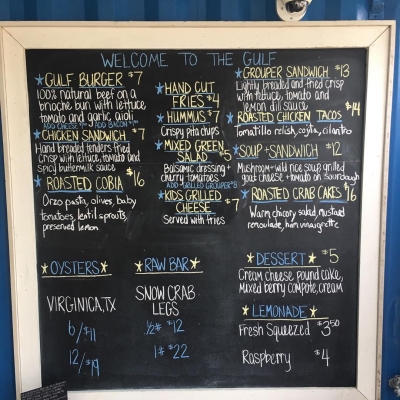 WELCOME TO THE GULF
GULF BURGER $7
100% natural beef on a
brioche bun with lettuce
tomato and garlic aioli
ADD CHEESE ADD BACON
CHICKEN SANDWICH $7
Hand breaded tenders fried
crisp with lettuce, tomato and
spicy buttermilk sauce
ROASTED COBIA $16
Orzo pasta, olives, baby
tomatoes, lentil sprouts,
preserved lemon
HAND CUT
FRIES $4
HUMMUS $7
Crispy pita chips
MIXED GREEN
SALAD $5
Balsamic dressing +
cherry tomatoes
ADD GRILLED GROUPER $8
KIDS GRILLED
CHEESE $7
Served with fries
GROUPER SANDWICH $13
Lightly breaded and fried crisp
with lettuce, tomato and
lemon dill sauce
ROASTED CHICKEN TACOS $14
Tomatillo relish, cojita, cilantro
SOUP + SANDWICH $12
Mushroom-wild rice soup, grilled
goat cheese + tomato on sourdough
ROASTED CRAB CAKES $16
Warm chicory salad, mustard
remoulade, ham vinaigrette
OYSTERS
VIRGINICA, TX
6/$11
12/$19
RAW BAR
SNOW CRAB
LEGS
1/2# $12
1# $22
DESSERT $5
Cream cheese pound cake,
mixed berry compote, cream
LEMONADE
Fresh Squeezed $3.50
Raspberry $4